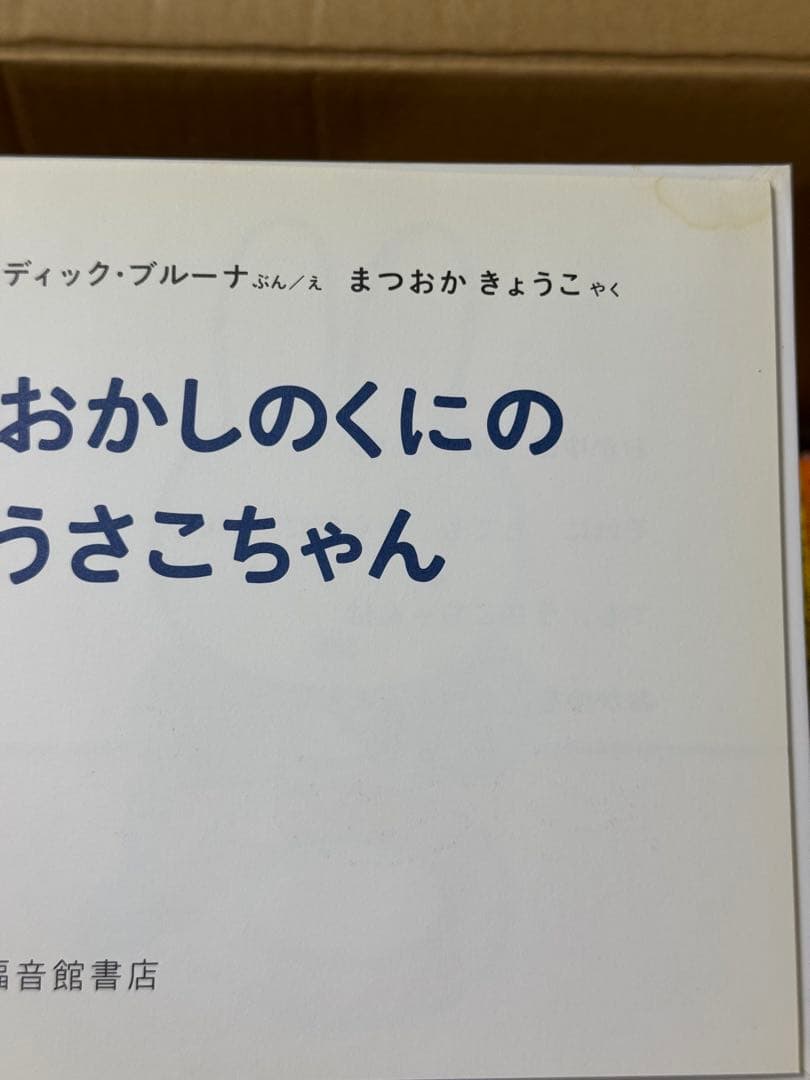 ディック・ブルーナ ぶん/え まつおか きょうこ やく
おかしのくにの
うさこちゃん
福音館書店